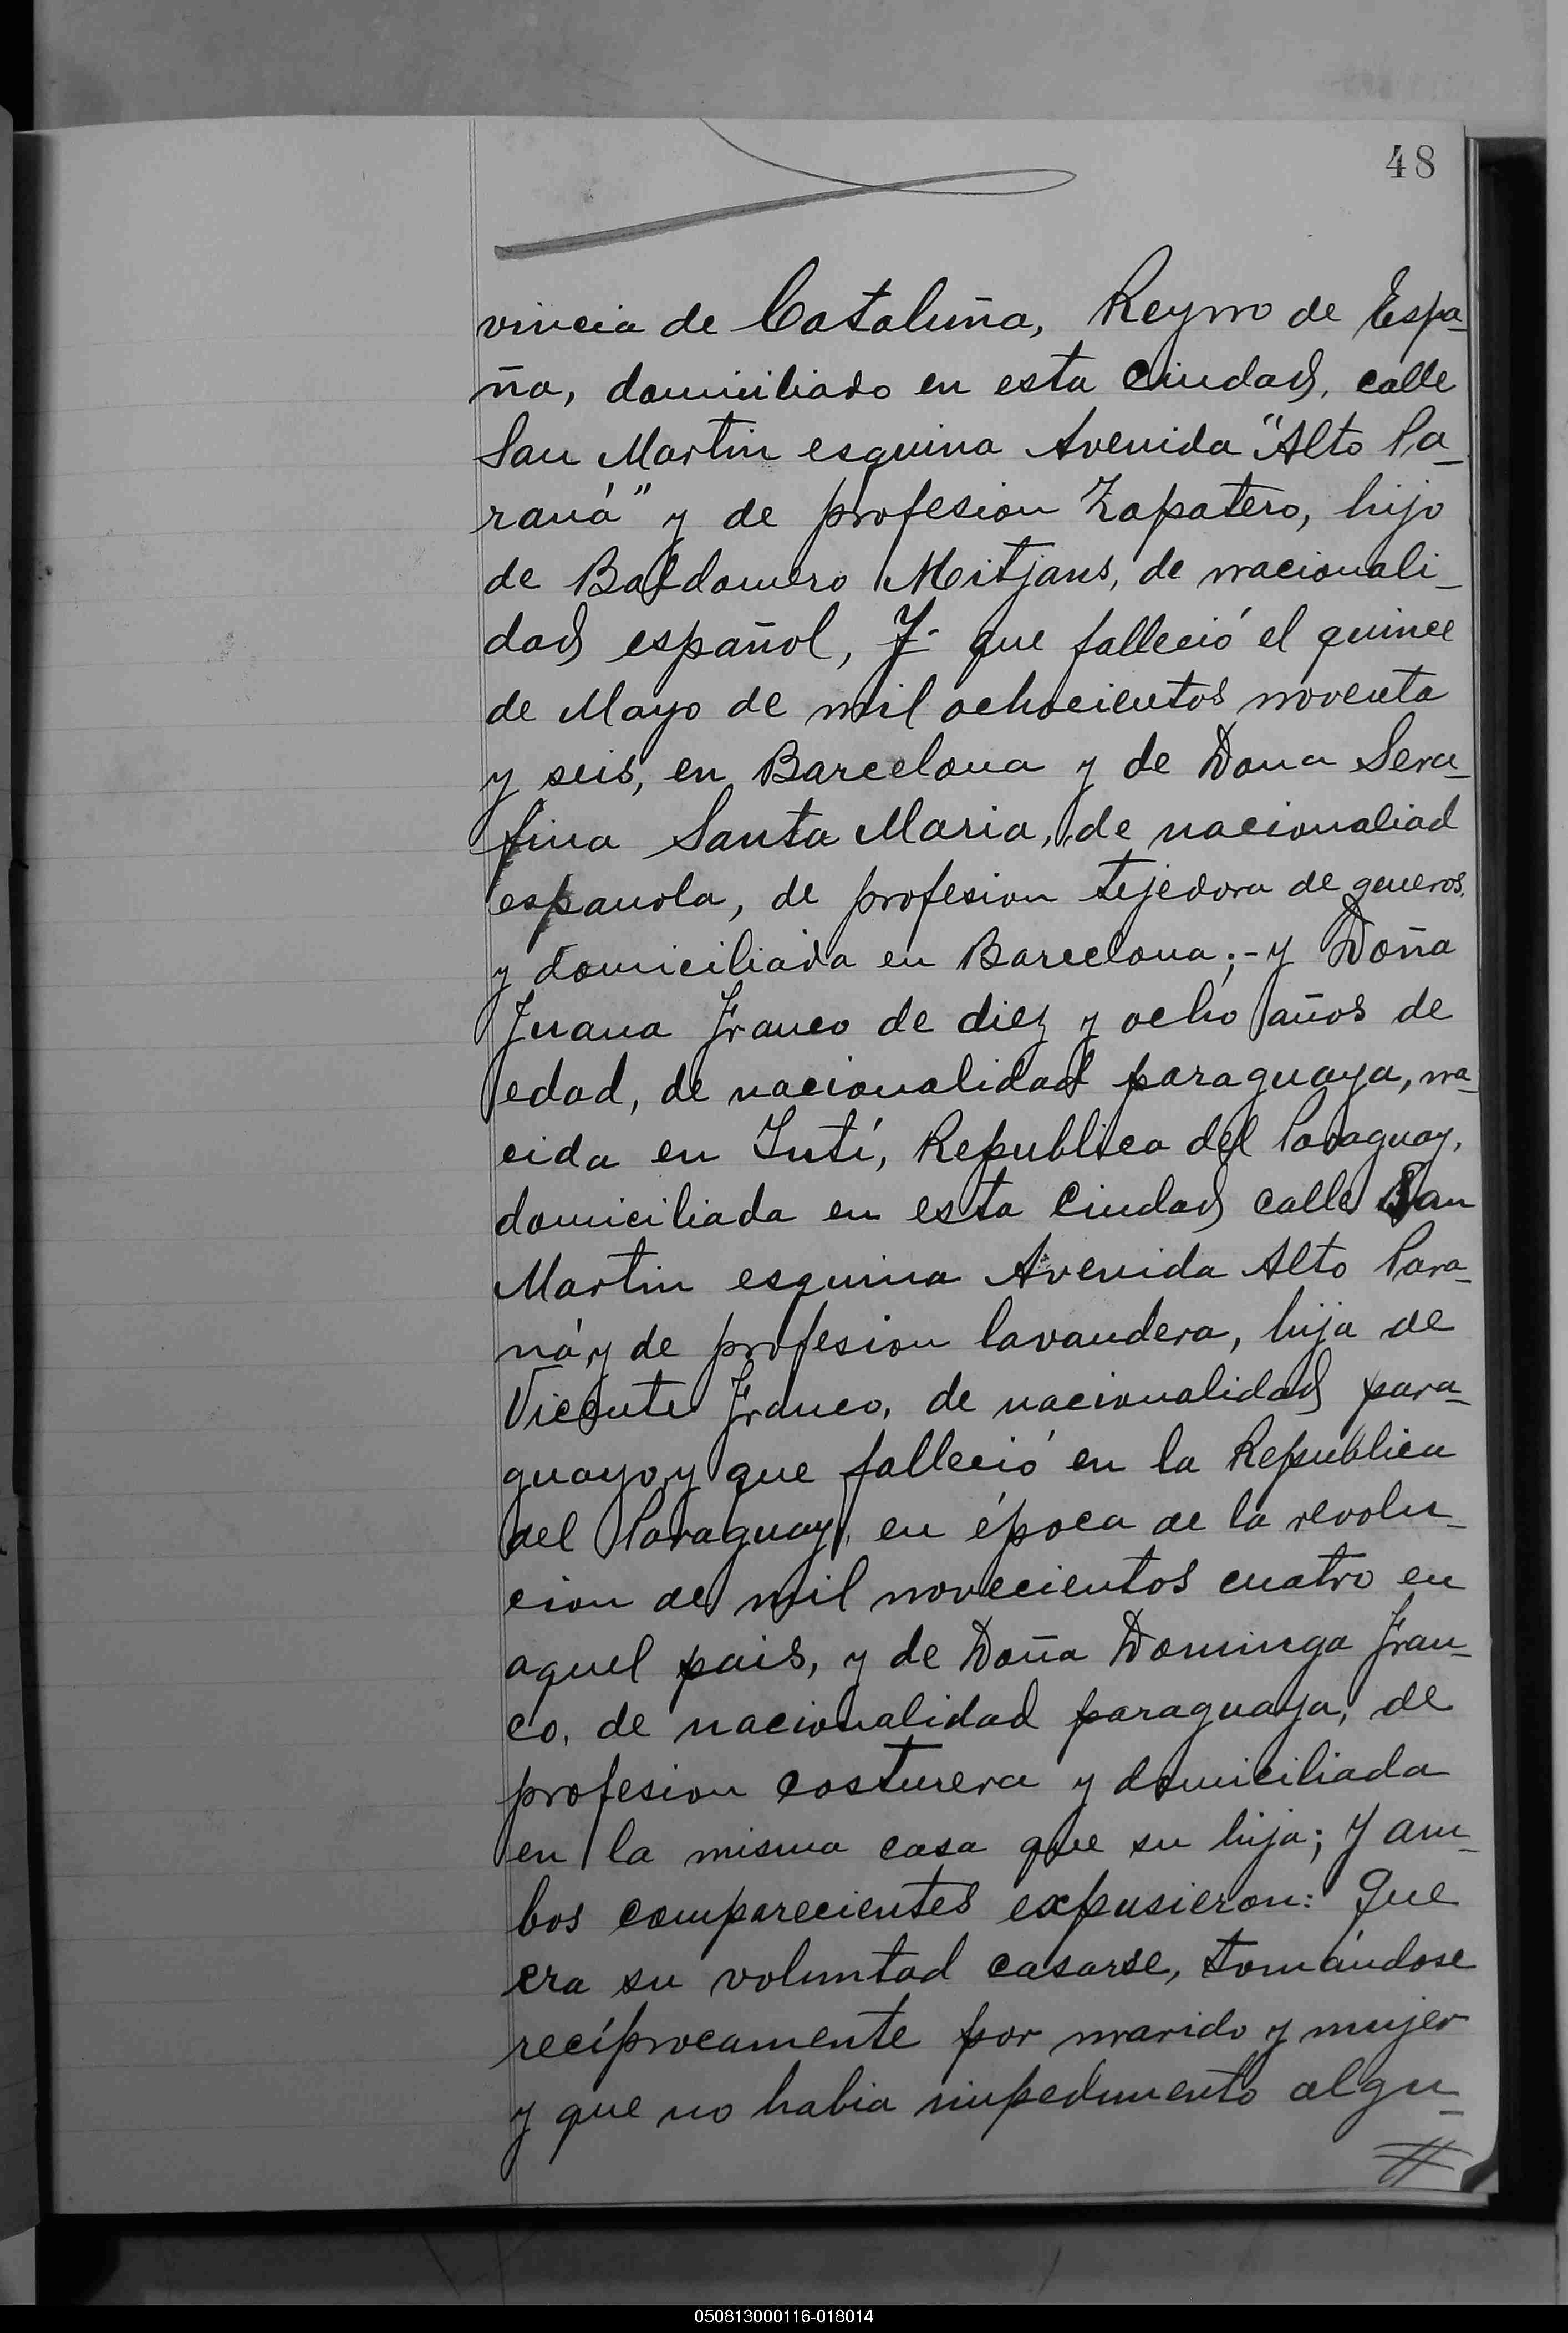 48
vincia de Cataluña, Reyno de Espa-
ña, domiciliado en esta Ciudad, calle
San Martin esquina Avenida "Alto Pa-
raná" y de profesion Zapatero, hijo
de Baldomero Mitjans, de nacionali-
dad español, y que falleció el quince
de Mayo de mil ochocientos noventa
y seis, en Barcelona y de Dona Sera-
fina Santa Maria, de nacionaliad
espanola, de profesion tejedora de generos,
y domiciliada en Barcelona;- y Doña
Juana Franco de diez y ocho años de
edad, de nacionalidad paraguaya, na-
cida en Yutí, Republica del Paraguay,
domiciliada en esta Ciudad calle San
Martin esquina Avenida Alto Para-
ná y de profesion lavandera, hija de
Vicente Franco, de nacionalidad para-
guayo, y que falleció en la Republica
del Paraguay, en época de la revolu-
cion de mil novecientos cuatro en
aquel pais, y de Doña Dominga Fran-
co, de nacionalidad paraguaya, de
profesion costurera y domiciliada
en la misma casa que su hija; Y am-
bos comparecientes expusieron: Que
era su voluntad casarse, tomándose
recíprocamente por marido y mujer
y que no habia impedimento algu-
050813000116-018014